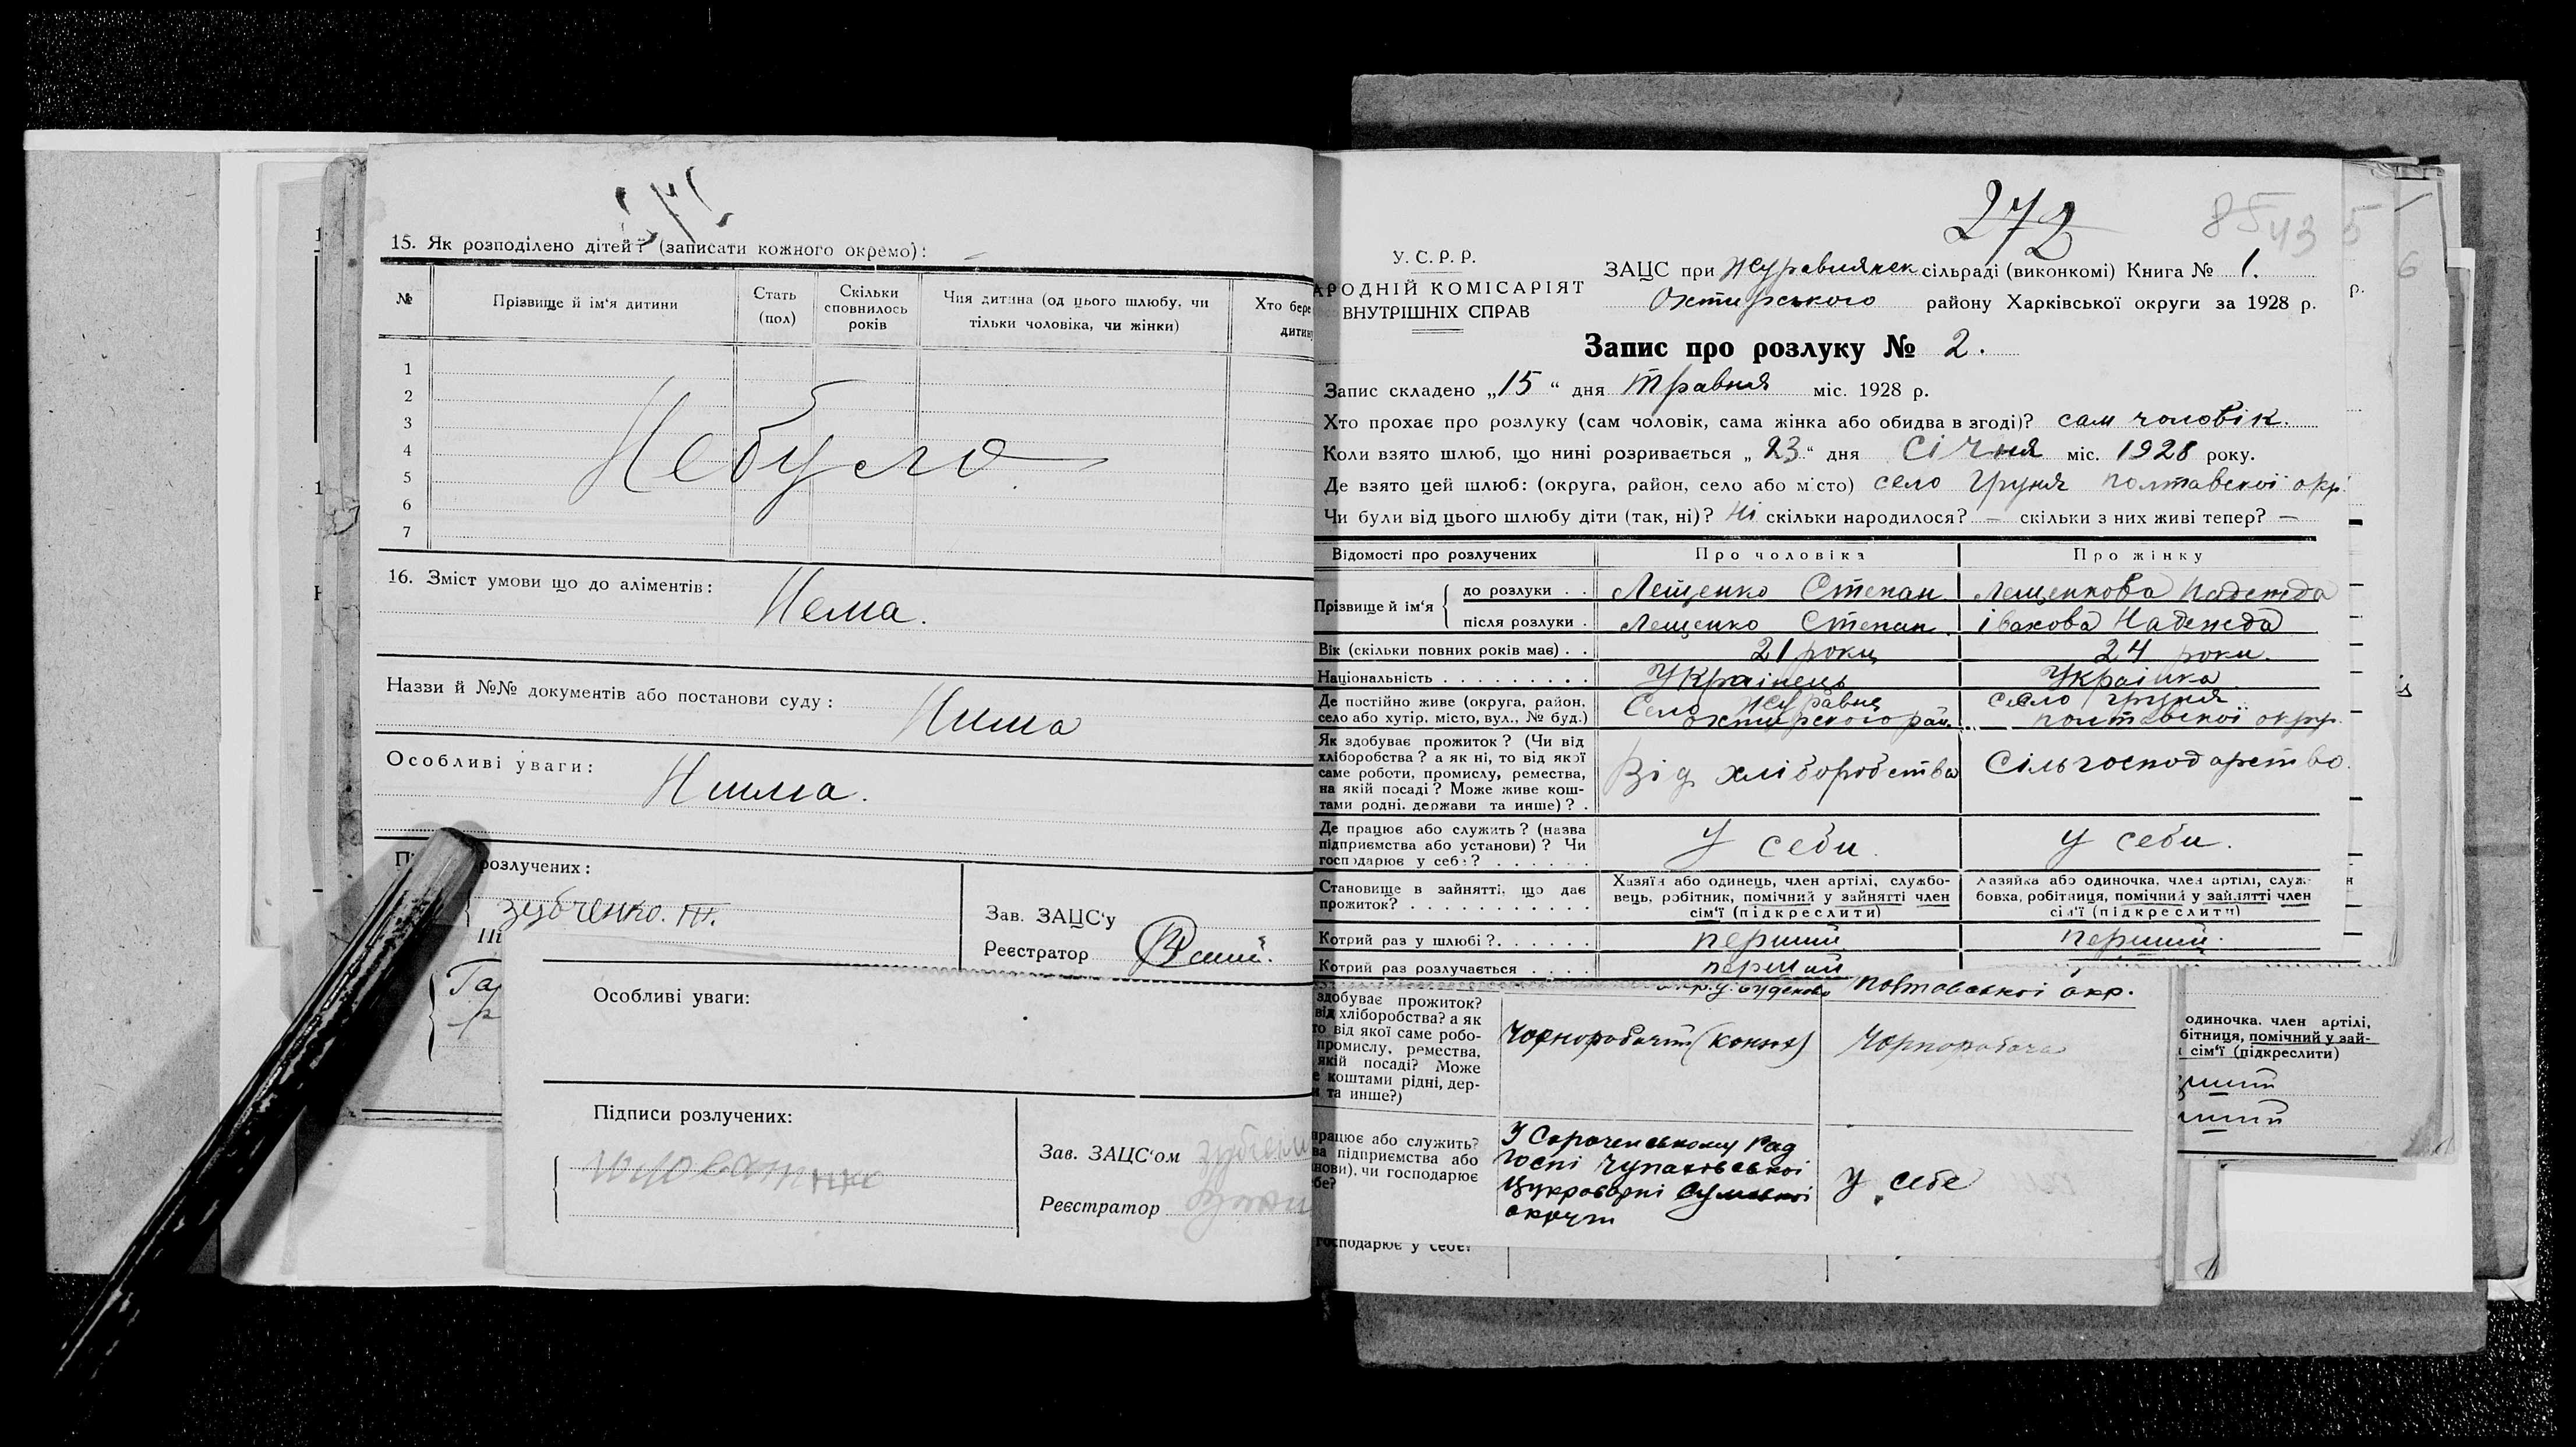 15. Як розподілено дітей? (записати кожного окремо): —
№ Прізвище й ім'я дитини Стать (пол) Скільки сповнилось років Чия дитина (од цього шлюбу, чи тільки чоловіка, чи жінки) Хто бере дитину
1
2
3
4
5
6
7
Небуло
16. Зміст умови що до аліментів: Нема.
Назви й №№ документів або постанови суду: Нима
Особливі уваги: Нима.
розлучених:
Зубченко. П.
Зав. ЗАЦС'у
Реєстратор
Особливі уваги:
Підписи розлучених:
Зав. ЗАЦС'ом
Реєстратор
272
8543
5
6
У. С. Р. Р.
АРОДНІЙ КОМІСАРІЯТ
ВНУТРІШНІХ СПРАВ
ЗАЦС при Журавлянск. сільраді (виконкомі) Книга № 1.
Охтирського району Харківської округи за 1928 р.
Запис про розлуку № 2.
Запис складено „15“ дня Травня міс. 1928 р.
Хто прохає про розлуку (сам чоловік, сама жінка або обидва в згоді)? сам чоловік.
Коли взято шлюб, що нині розривається „23“ дня Січня міс. 1928 року.
Де взято цей шлюб: (округа, район, село або місто) село Груня полтавскої окр.
Чи були від цього шлюбу діти (так, ні)? Ні скільки народилося? — скільки з них живі тепер? —
Відомості про розлучених Про чоловіка Про жінку
Прізвище й ім'я до розлуки Лещенко Степан Лещенкова Надежда
після розлуки Лещенко Степан Івахова Надежда
Вік (скільки повних років має) 21 роки 24 роки.
Національність Українець Українка
Де постійно живе (округа, район, село або хутір, місто, вул., № буд.) Село Журавне охтирского рай. село Груня полтавскої окру.
Як здобуває прожиток? (Чи від хліборобства? а як ні, то від якої саме роботи, промислу, ремества, на якій посаді? Може живе коштами родні, держави та инше)? Від хліборобства Сільгосподарство.
Де працює або служить? (назва підприємства або установи)? Чи господарює у себе? У себи. у себи.
Становище в зайнятті, що дає прожиток? Хазяїн або одинець, член артілі, службовець, робітник, помічний у зайнятті член сім'ї (підкреслити) Хазяйка або одиночка, член артілі, службовка, робітниця, помічний у зайнятті член сім'ї (підкреслити)
Котрий раз у шлюбі? перший перший.
Котрий раз розлучається перший
Полтавської окр.
здобуває прожиток?
від хліборобства? а як
то від якої саме робо-
промислу, ремества,
якій посаді? Може
е коштами рідні, дер-
та инше?)
Чорноробочий (конюх) Чорноробоча
працює або служить?
ва підприємства або
нови), чи господарює
бе?
У Сороченському Рад
госпі Чупаховської
Цукроварні Сумської
округи
У себе
господарює у себе?
одиночка, член артілі,
бітниця, помічний у зай-
сім'ї (підкреслити)